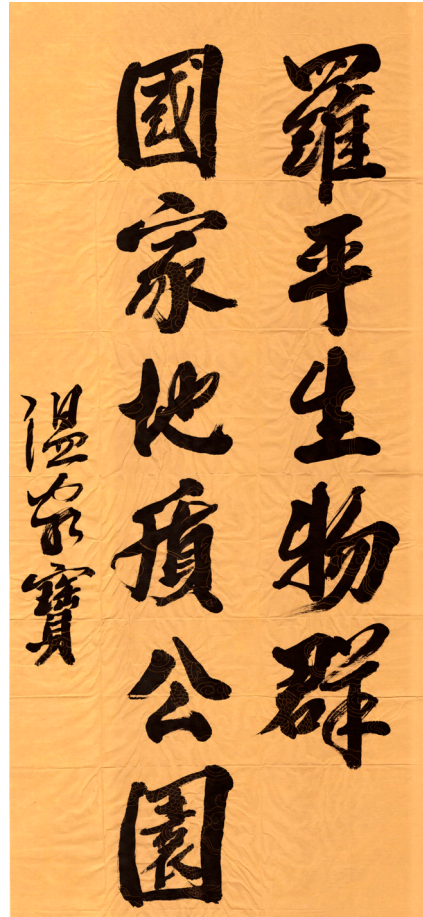 羅平生物群
國家地質公園
溫家寶